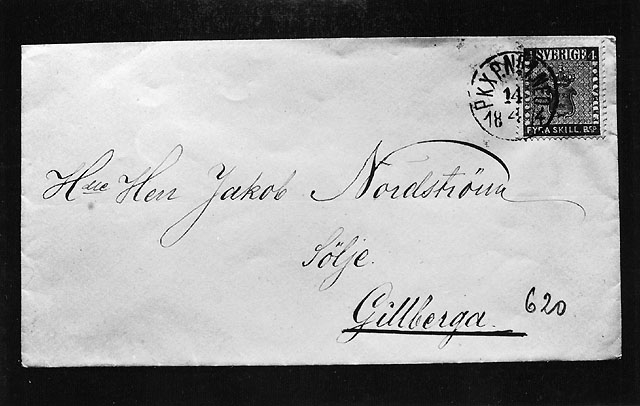 SVERIGE 4
PKXP.Nº
14
18 4
FYRA SKILL. BCO
Hrr Herr Jakob Nordström
Sölje.
Gillberga.
620